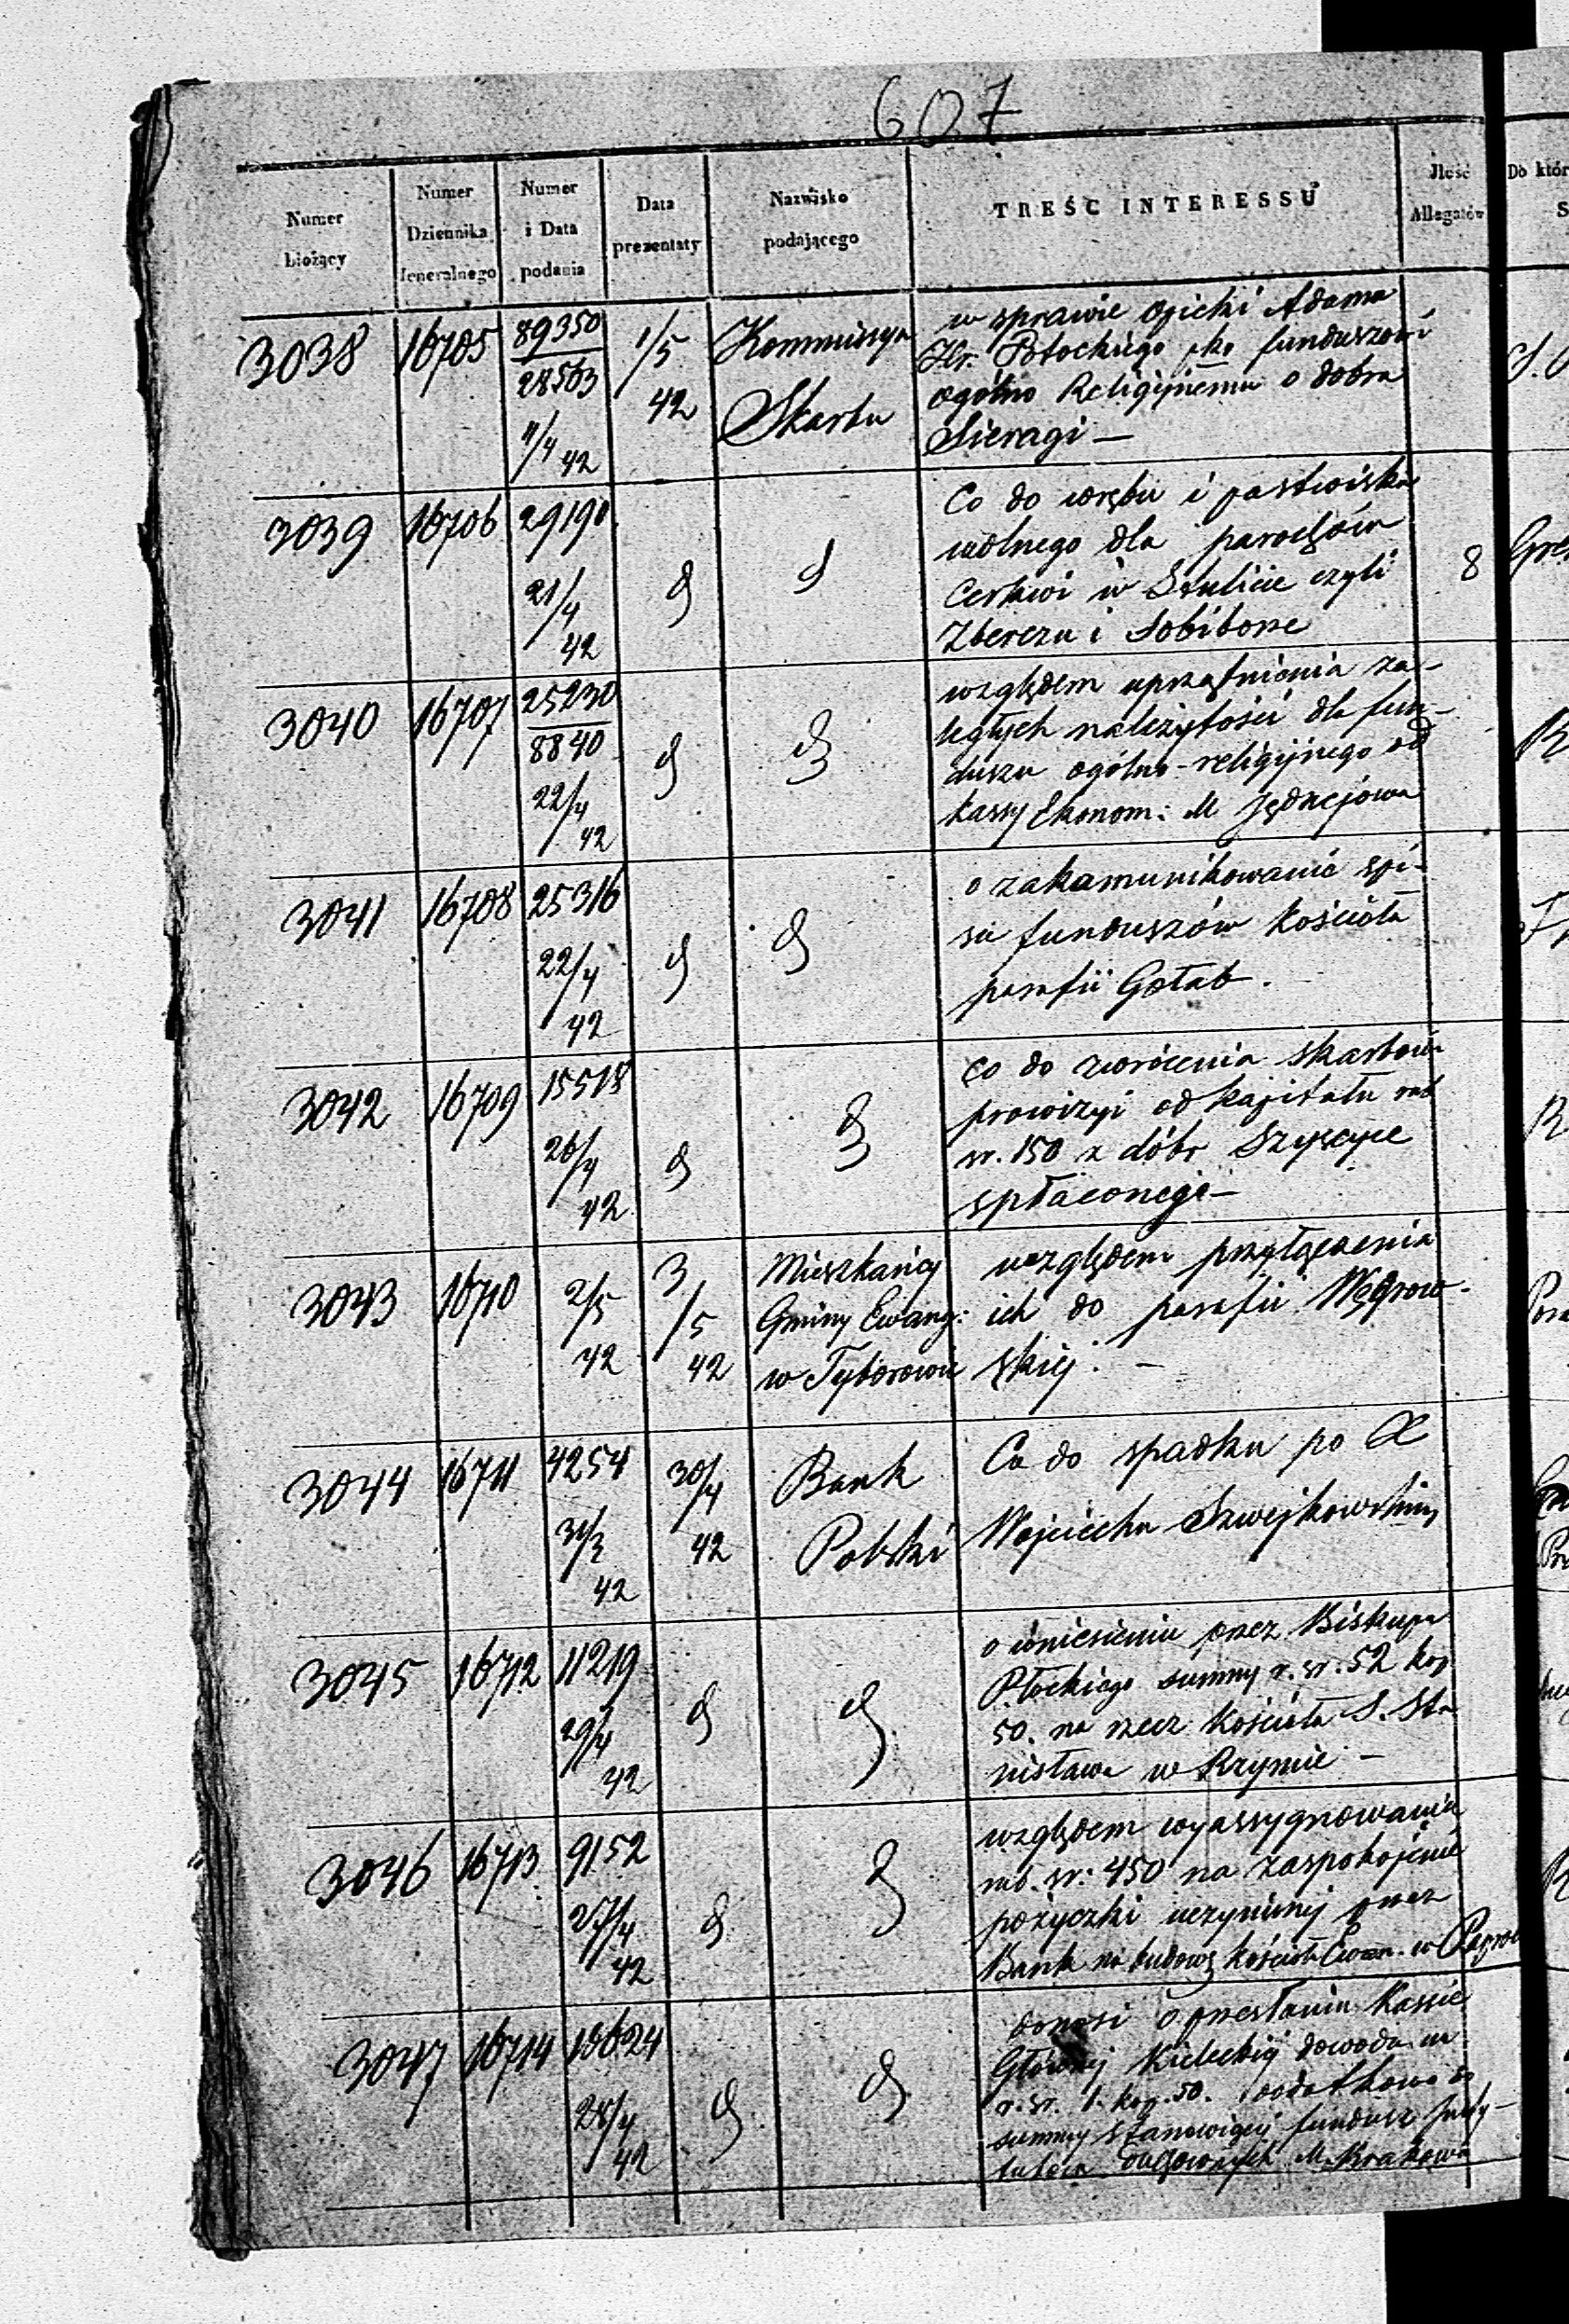 607
Numer bieżący
Numer Dziennika Jeneralnego
Numer i Data podania
Data prezentaty
Nazwisko podającego
TREŚĆ INTERESSU
Ilość Allegatów
Do któr
3038 16705 89350 1/5 Kommissya w sprawie Opieki Adama
28563 42 Skarbu Hr. Potockiego pko funduszowi
11/4 42 ogólno Religijnemu o dobra
Sieragi —
3039 16706 29190 Co do wrębu i pastwiska
21/4 wolnego dla parochów 8
42 Cerkwi w Stulicie czyli
Zberezu i Sobiborze
3040 16707 25230 względem uprzątnienia za-
8840 ległych należytości dla fun-
22/4 duszu ogólno-religijnego od
42 kassy Ekonom: M Jędrzejowa
3041 16708 25316 o zakomunikowanie spi-
22/4 su funduszów Kościoła
42 parafii Gołab.
3042 16709 15518 Co do zwrócenia skarbowi
26/4 prowizyi od kapitału rub
42 sr. 150 z dóbr Szyszyce
spłaconego —
3043 16710 2/5 3/5 Mieszkańcy względem przyłączenia
42 42 Gminy Ewang: ich do parafii Węgrow-
w Tyborowie skiej. —
3044 16711 4254 30/4 Bank Co do spadku po X
31/3 42 Polski Wojciechu Szwejkowskim
42
3045 16712 11219 o wniesieniu przez Biskupa
29/4 Płockiego summy r. sr. 52 kop
42 50. na rzecz Kościoła S. Sta
nisława w Rzymie —
3046 16713 9152 względem wyassygnowania
27/4 rub. sr: 450 na zaspokojenie
42 pożyczki uczynionej przez
Bank na budowę Kościoła Ewan. w
3047 16714 19624 donosi o przesłaniu Kassie
28/4 Głównej Kieleckiej dowodu na
42 r. sr. 1. kop. 50. dodatkowo do
summy stanowiącej fundusz Insty-
tutów Duchownych M. Krakowa